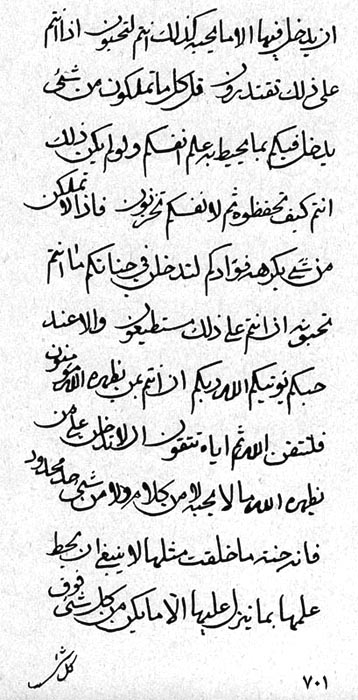 ان يدخل فيها الا ما يحبه كذلك انتم لتحبون اذا انتم
على ذلك تقتدرون قل كل ما تملكون من شئ
يدخل فيكم بما يحيط به علم انفسكم ولو لم يكن ذلك
انتم كيف تحفظوه ثم لانفسكم تخزنون فاذا لا تملكن
من شئ يكرهه فؤادكم لتدخلن في جناتكم ما انتم
تحبون ان انتم على ذلك مستطيعون والا عند
حبكم يؤتيكم الله ربكم ان انتم بمن يظهره الله موقنون
فلتتقن الله ثم اياه تتقون ان لا تدخلن على من
يظهره الله ما لا يحبه لا من كلام ولا من شئ حد محدود
فانه جنة ما خلقت مثلها لا ينبغي ان يحط
علمها بما ينزل عليها الا ما يكن من كل شئ فوق
كل شئ
٧٠١